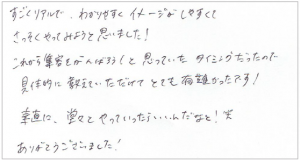 すごくリアルで、わかりやすく イメージがしやすくて
さっそくやってみようと思いました！
これから集客をがんばろう！と思っていた タイミングだったので
具体的に教えていただけて とても有難かったです！
素直に、堂々とやっていったらいいんだなと！笑
ありがとうございました！